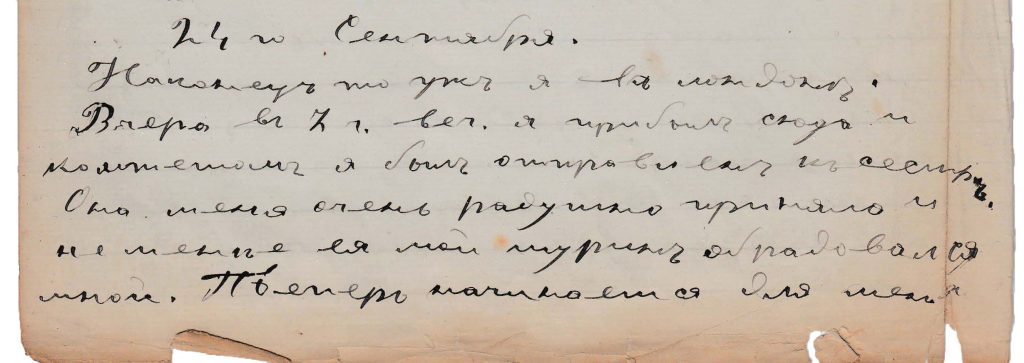 24 го Сентября.
Наконецъ то ужъ я въ Лондонъ.
Вчера въ 7 г. веч. я прибылъ сюда и
комитетомъ я былъ отправленъ къ сестрѣ.
Она меня очень радушно приняла и
не менне ея мой шуринъ обрадовался
мной. Тѣперь начинается для меня